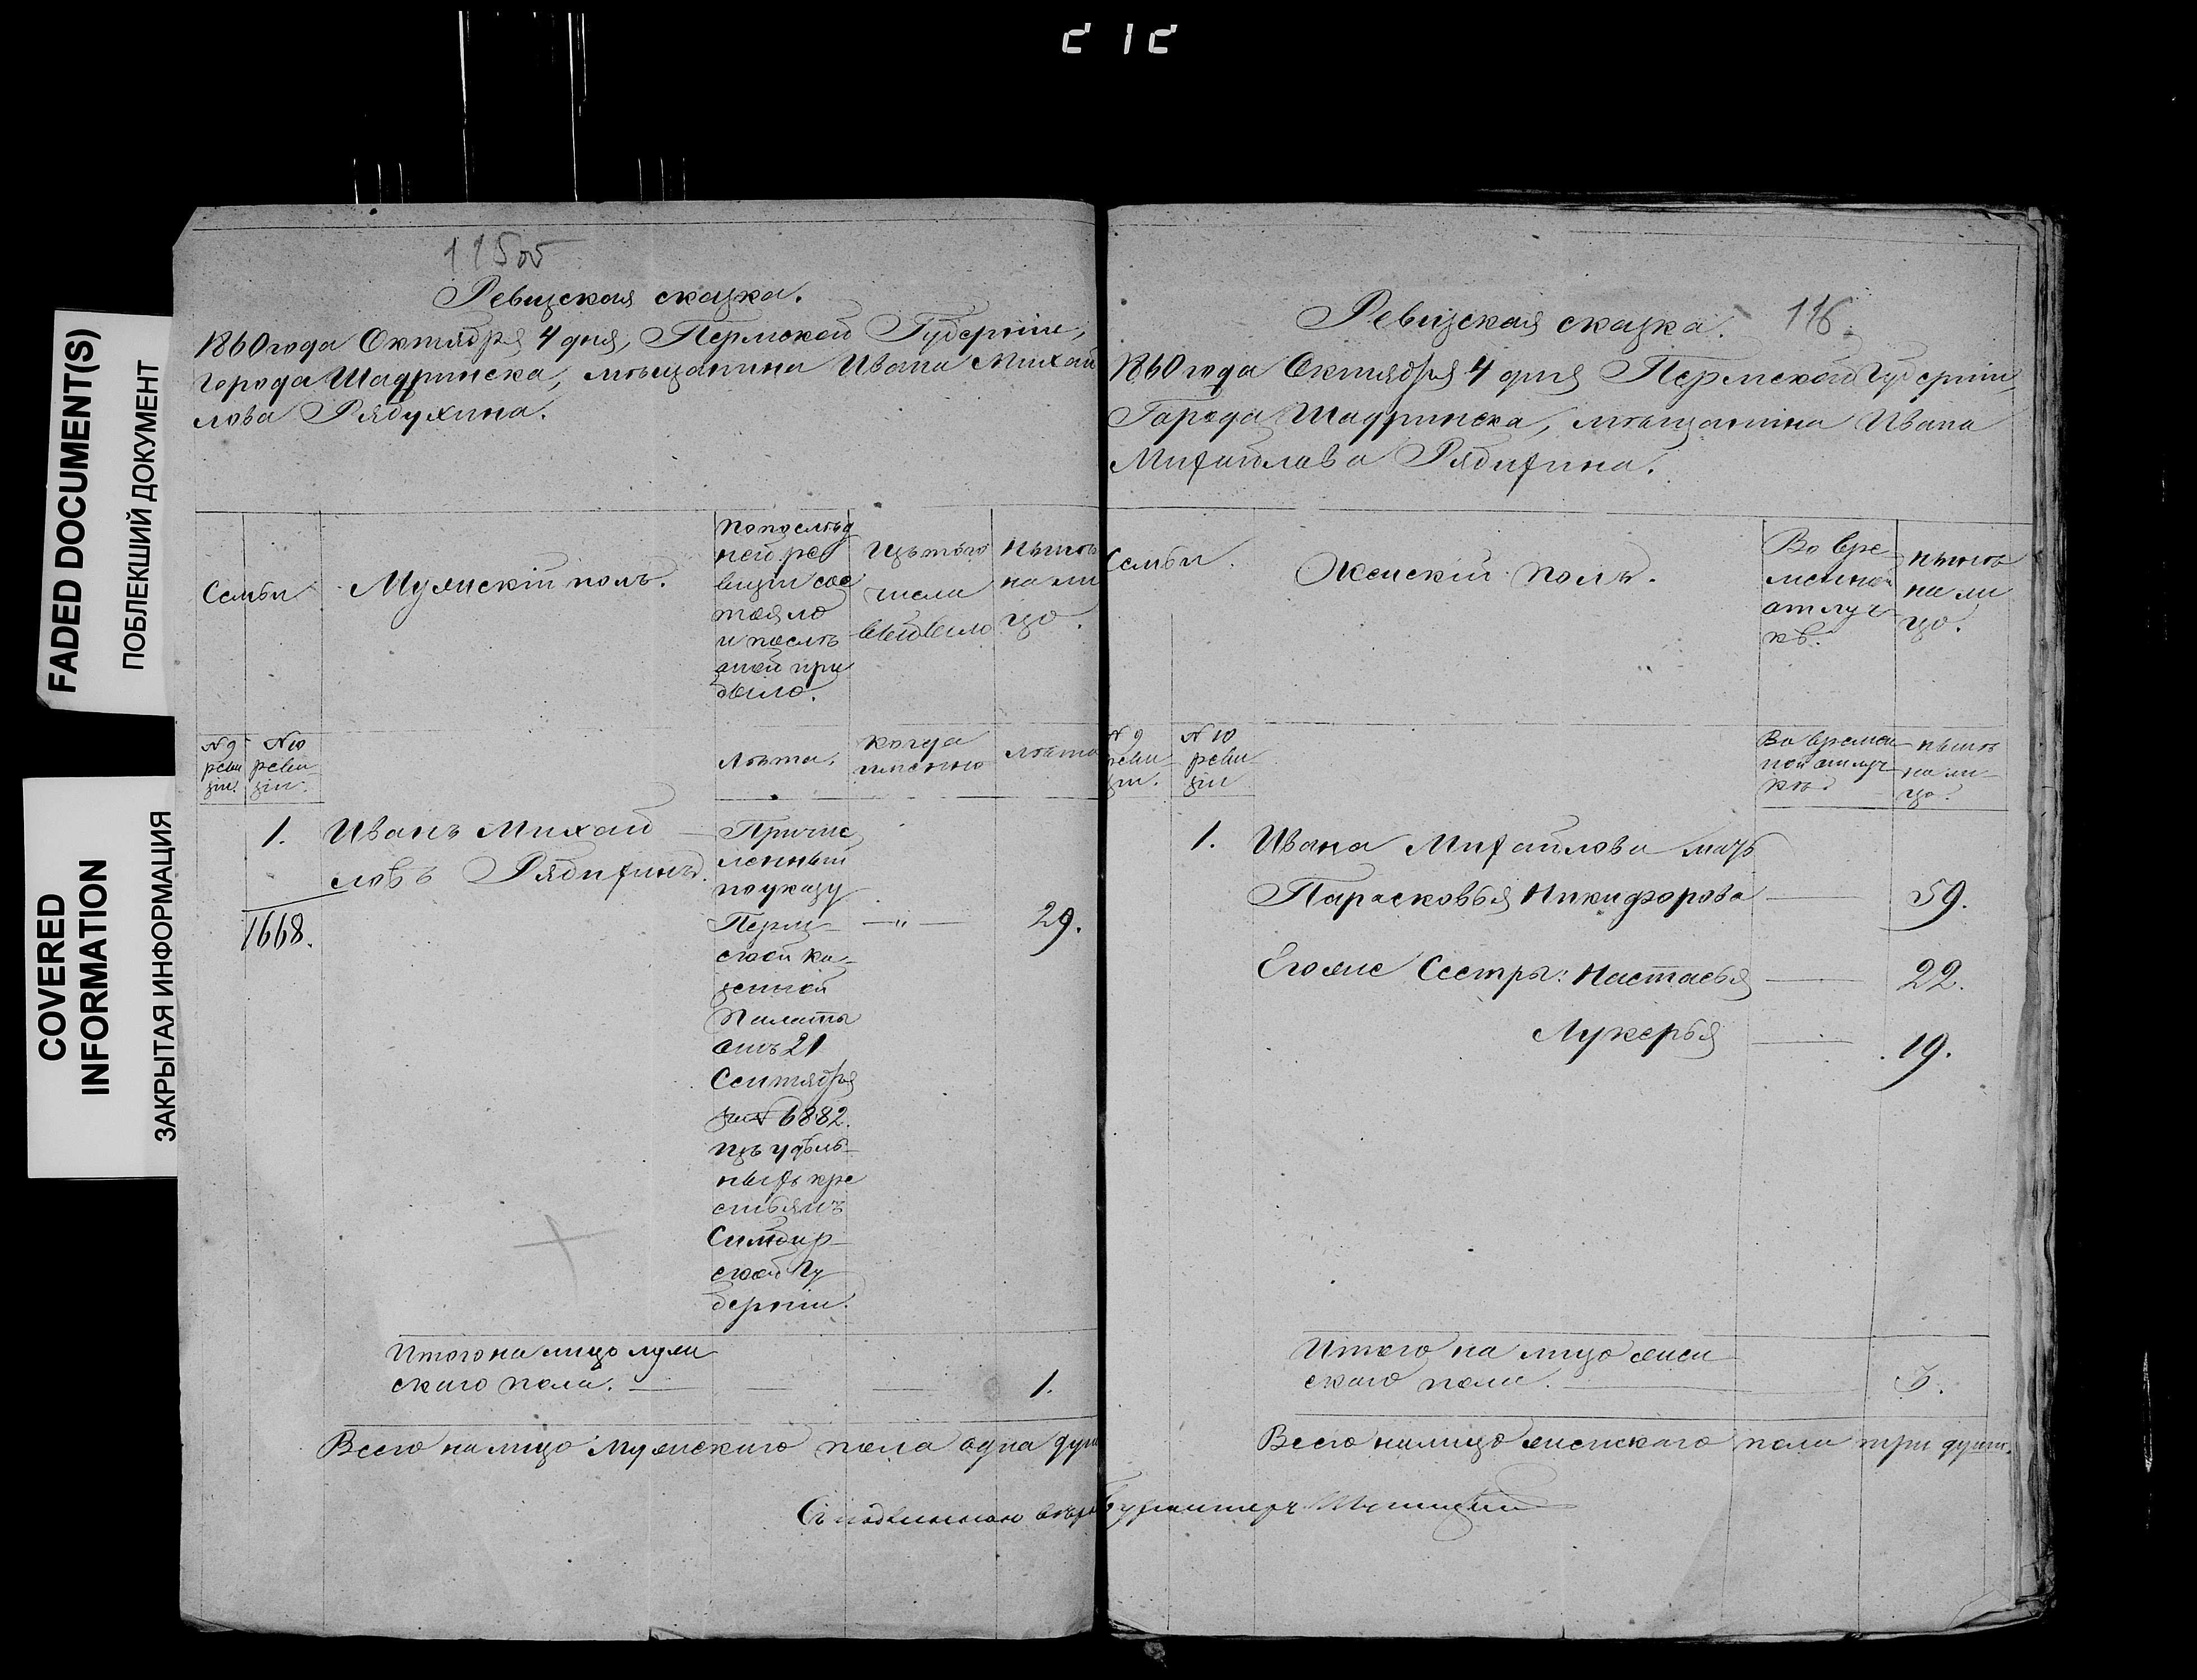 212
FADED DOCUMENT(S)
ПОБЛЕКШИЙ ДОКУМЕНТ
COVERED
INFORMATION
ЗАКРЫТАЯ ИНФОРМАЦИЯ
115об
Ревизская сказка.
1860 года Октября 4 дня, Пермской Губернiи,
города Шадринска, мѣщанина Ивана Михай
лова Рябухина.
Семьи
Мужскiй полъ.
По послѣд
ней ре
визiи сос
тояло
и послѣ
оной при
было.
Изъ того
числа
выбыло
Нынѣ
на ли
цо.
№ 9
реви
зiи.
№ 10
реви
зiи.
Лѣта.
Когда
именно
Лѣта
1.
Иванъ Михай
ловъ Рябихинъ.
1668.
Причис
ленный
по указу
Перм
ской ка-
зенной
Палаты
отъ 21
Сентября
за № 6882.
изъ удѣль
ныхъ кре
стьянъ
Симбир-
ской Гу
бернiи.
— „ —
29.
Итого на лицо муж
скаго пола.
1.
Всего на лицо мужскаго пола одна душ
Съ подлинною вѣр
116.
Ревизская сказка.
1860 года Октября 4 дня Пермской Губернiи,
Города Шадринска, мѣщанина Ивана
Михайлова Рябихина.
Семьи.
Женскiй полъ.
Во вре
менной
отлуч
кѣ.
Нынѣ
на ли
цо.
№ 9
реви
зiи.
№ 10
реви
зiи
Во времен
ной отлуч
кѣ
нынѣ
на ли-
цо.
1.
Ивана Михайлова мать
Парасковья Никифорова
59.
Егоже Сестры: Настасья
22.
Лукерья
19.
Итого на лицо жен
скаго пола.
3.
Всего на лицо женскаго пола три души.
Бургомистръ